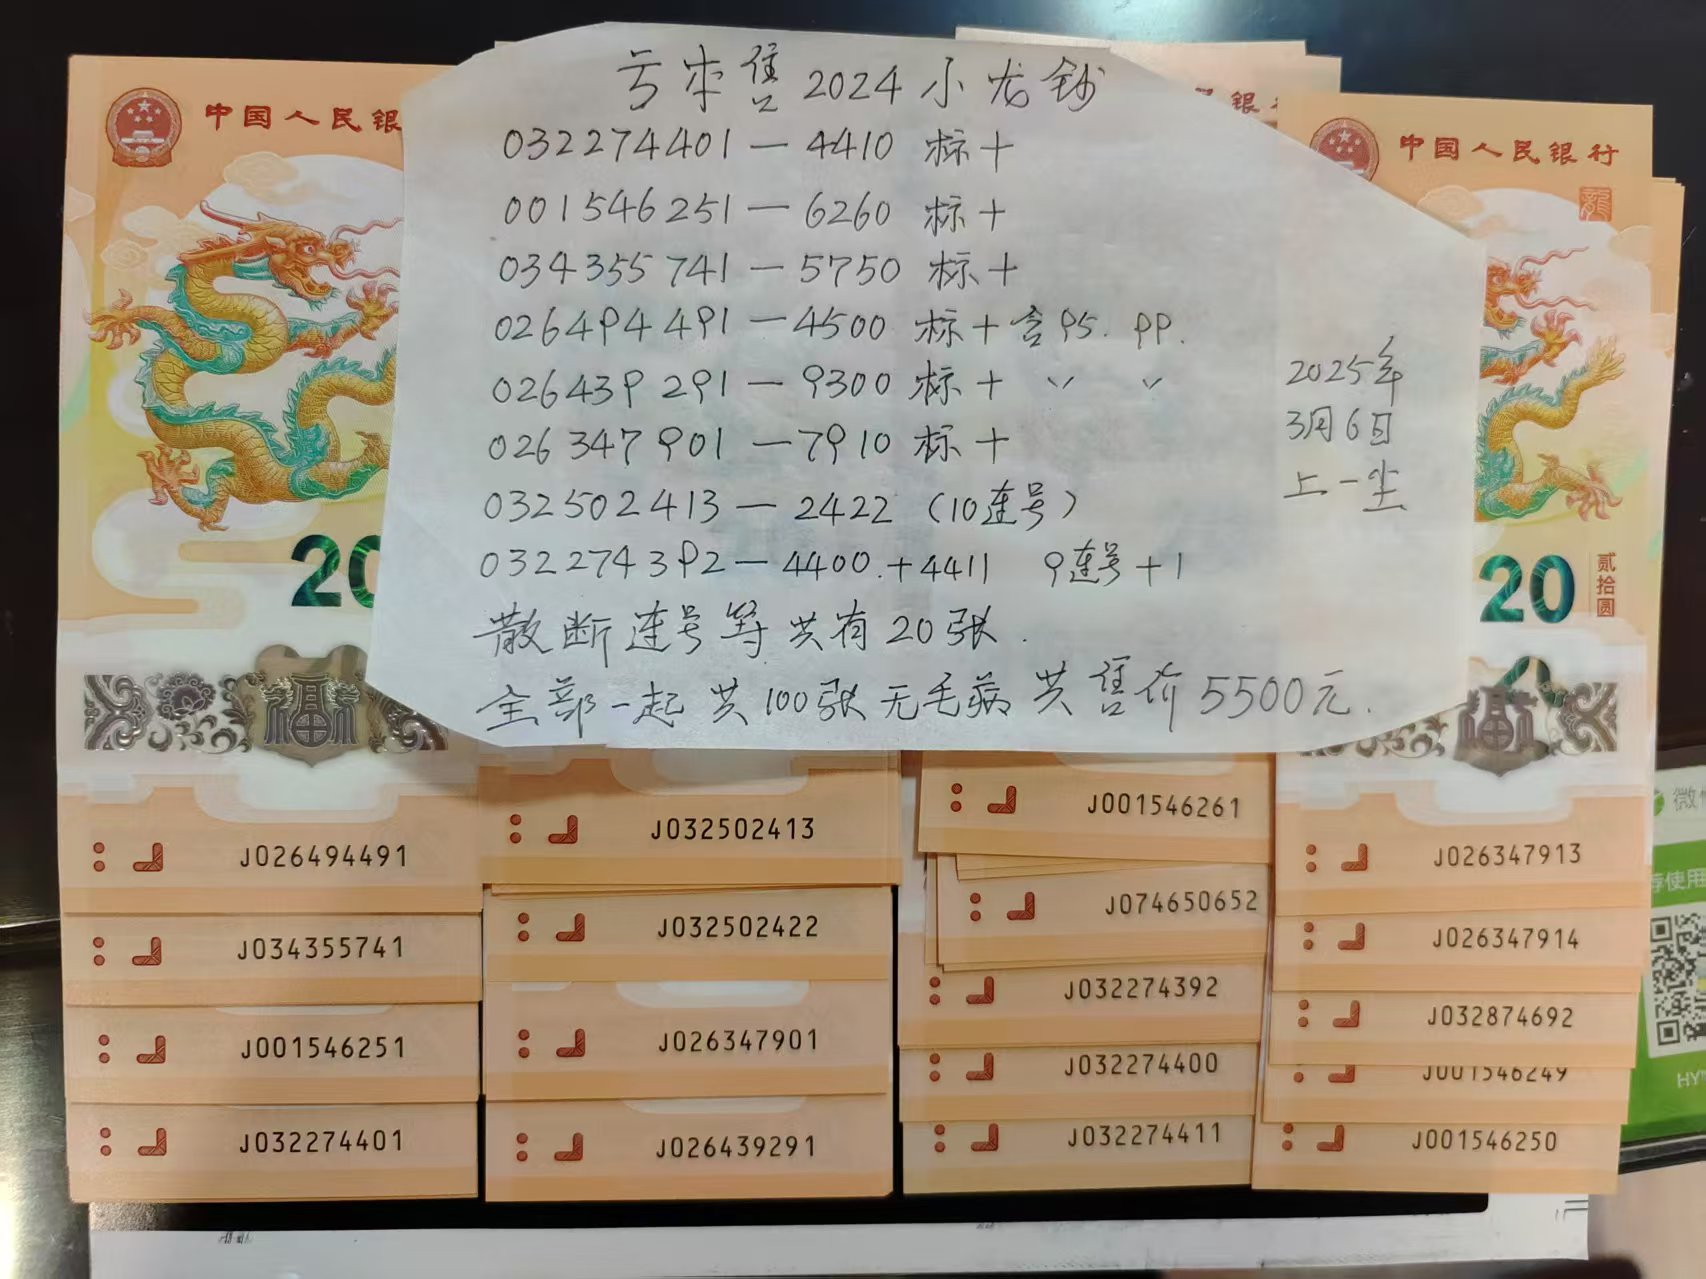 亏本售2024小龙钞
032274401—4410 标十
001546251—6260 标十
034355741—5750 标十
026494491—4500 标十含95.99.
026439291—9300 标十 〃 〃
026347901—7910 标十
032502413—2422（10连号）
032274392—4400.+4411 9连号+1
散断连号等共有20张.
全部一起共100张无毛病共售价5500元.
2025年
3月6日
上一尘
中国人民银
20
福
J026494491
J034355741
J001546251
J032274401
J032502413
J032502422
J026347901
J026439291
银
J001546261
J074650652
J032274392
J032274400
J032274411
中国人民银行
龍
20
贰拾圆
福
J026347913
J026347914
J032874692
J001546249
J001546250
微
使用
HY